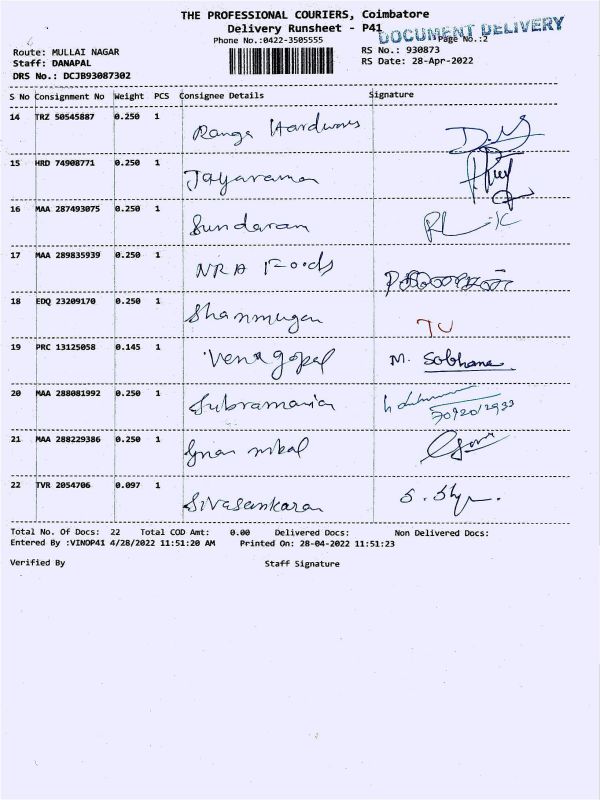 THE PROFESSIONAL COURIERS, Coimbatore
Delivery Runsheet - P41
DOCUMENT DELIVERY
Phone No.:0422-3505555
Page No.:2
Route: MULLAI NAGAR
RS No.: 930873
Staff: DANAPAL
RS Date: 28-Apr-2022
DRS No.: DCJB93087302
S No Consignment No Weight PCS Consignee Details Signature
14 TRZ 50545887 0.250 1 Ranga Hardwares
15 HRD 74908771 0.250 1 Jayaraman
16 MAA 287493075 0.250 1 Sundaram
17 MAA 289835939 0.250 1 NRA Foods
18 EDQ 23209170 0.250 1 Shanmugan
19 PRC 13125058 0.145 1 Venugopal M. Sobhana
20 MAA 288081992 0.250 1 Subramania
21 MAA 288229386 0.250 1
22 TVR 2054706 0.097 1 Sivasankaran
Total No. Of Docs: 22 Total COD Amt: 0.00 Delivered Docs: Non Delivered Docs:
Entered By :VINOP41 4/28/2022 11:51:20 AM Printed On: 28-04-2022 11:51:23
Verified By Staff Signature